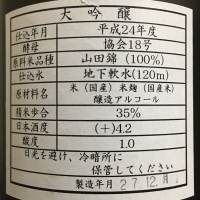 大吟醸
仕込年月 平成24年度
酵母 協会18号
原料米品種 山田錦（100%）
仕込水 地下軟水（120m）
原材料名 米（国産）米麹（国産米）
醸造アルコール
精米歩合 35%
日本酒度 （＋）4.2
酸度 1.0
日光を避け、冷暗所に
保管してください
製造年月 27.12月